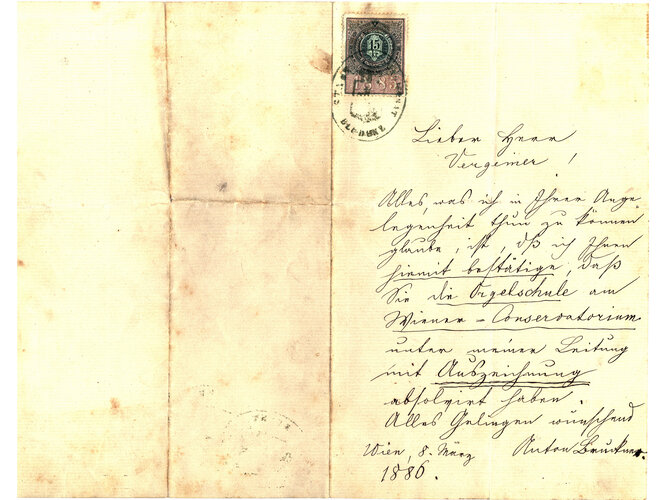 15
Lieber Herr
Vergeiner!
Alles, was ich in Ihrer Ange-
legenheit thun zu können
glaube, ist, dß ich Ihnen
hiemit bestätige, daß
Sie die Orgelschule am
Wiener-Conservatorium
unter meiner Leitung
mit Auszeichnung
absolvirt haben.
Alles Gelingen wünschend
Wien, 8. März Anton Bruckner.
1886.